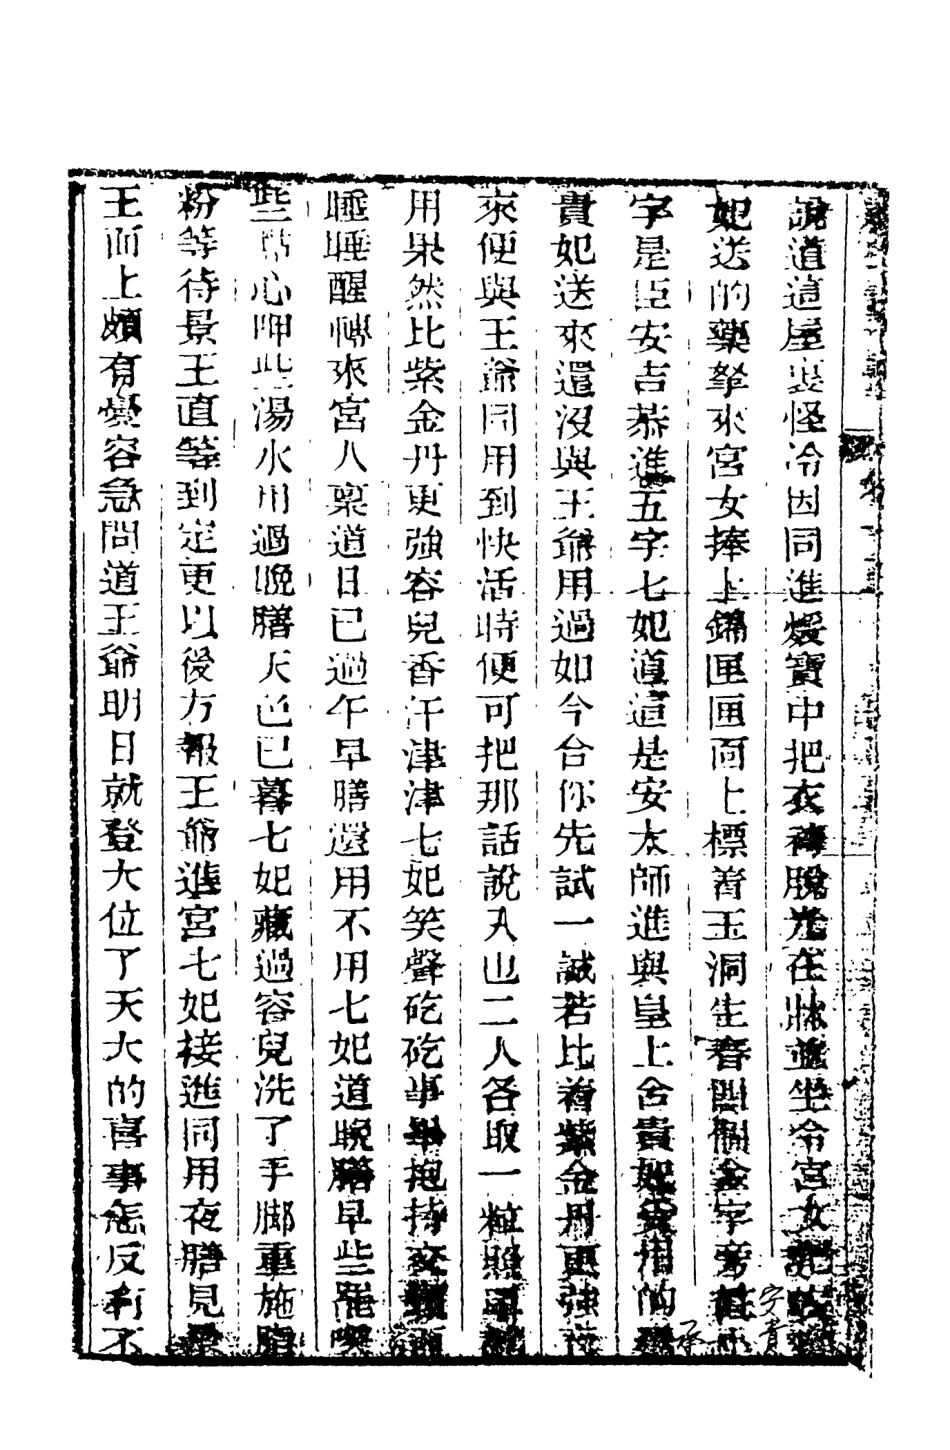 說道這屋裏怪冷因同進煖寶中把衣褲脫光在牀並坐令宮女把
妃送的藥拏來宮女捧上錦匣匣面上標着玉洞生春四個金字旁
字是臣安吉恭進五字七妃道這是安太師進與皇上合貴妃用的
貴妃送來還沒與王爺用過如今合你先試一試若比着紫金丹更強
來便與王爺同用到快活時便可把那話說入也二人各取一粒照
用果然比紫金丹更強容兒香汗津津七妃笑聲矻矻事畢抱持交
睡睡醒轉來宮人稟道日已過午早膳還用不用七妃道晚膳早些罷
些點心呷些湯水用過晚膳天色已暮七妃藏過容兒洗了手脚重施脂
粉等待景王直等到定更以後方報王爺進宮七妃接進同用夜膳見景
王面上頗有憂容急問道王爺明日就登大位了天大的喜事怎反有不